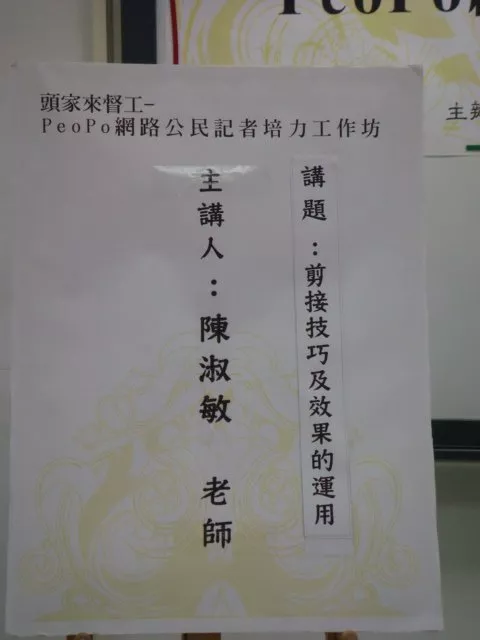 PeoPo
主
頭家來督工-
PeoPo網路公民記者培力工作坊
講題：剪接技巧及效果的運用
主講人：陳淑敏 老師